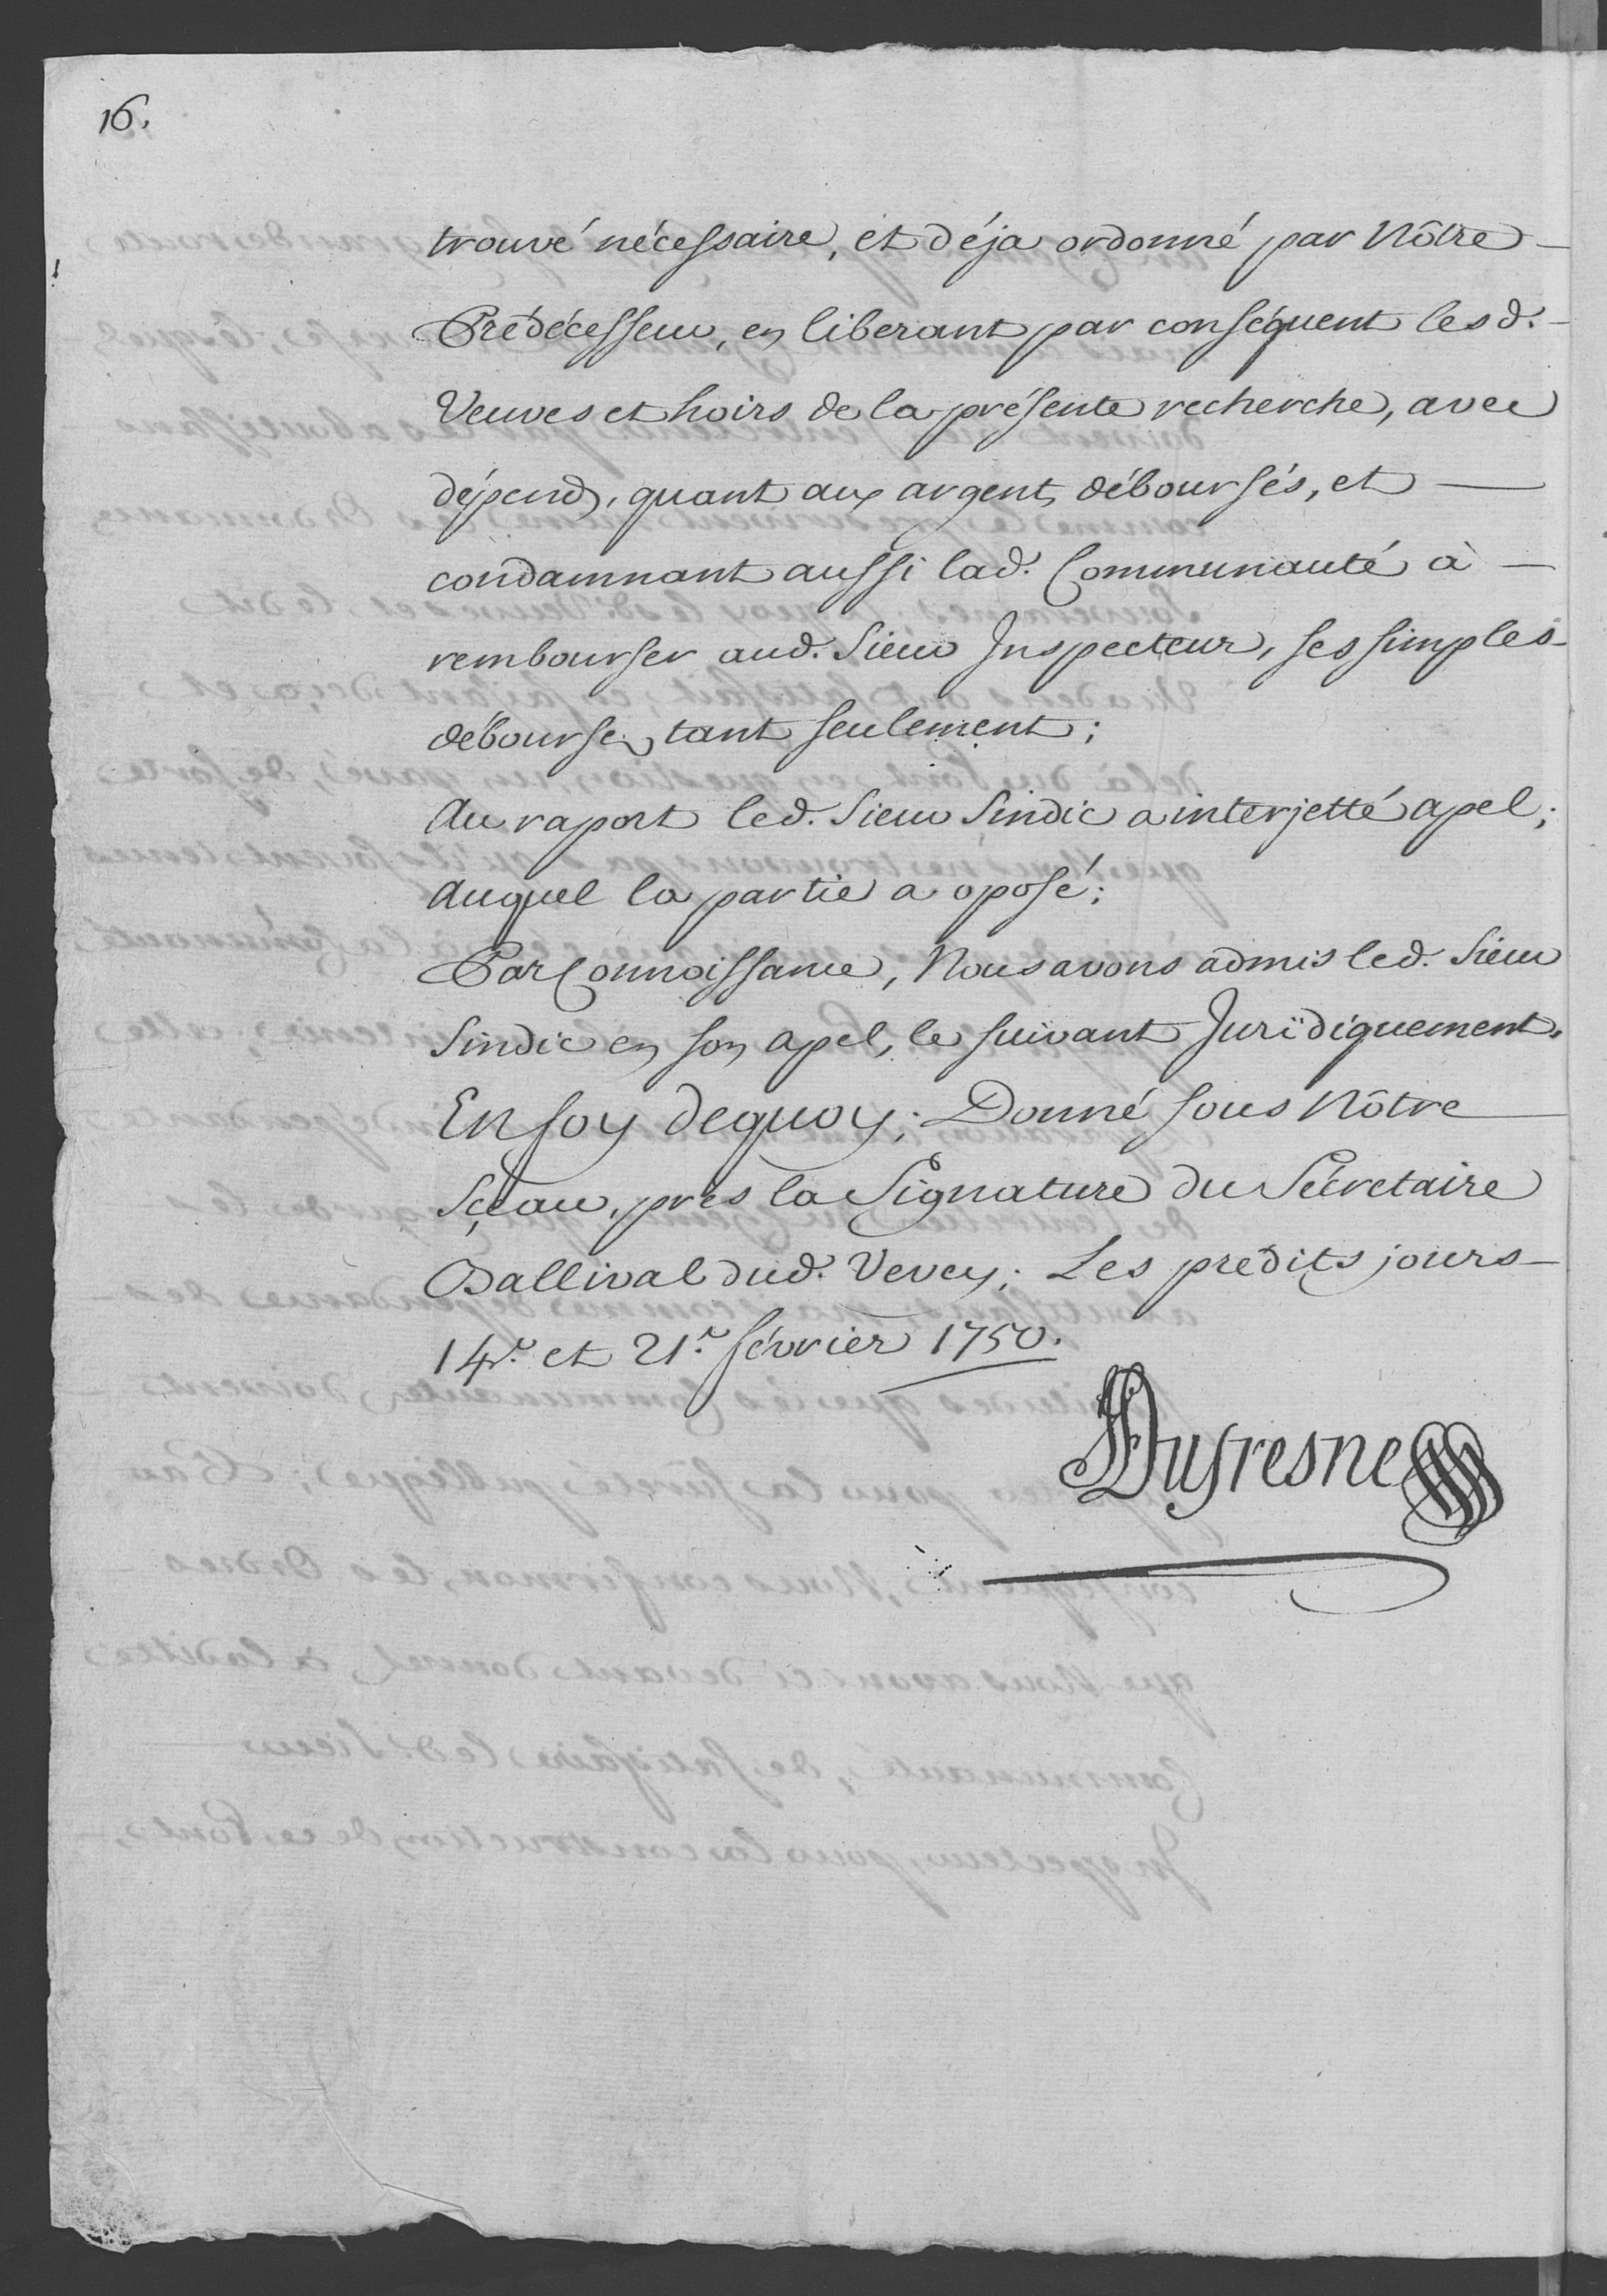 16.
trouvé nécessaire, et déja ordonné par Nôtre —
Prédécesseur, en liberant par conséquent lesd. —
Veuves et hoirs de la présente recherche, avec
dépends, quant aux argents déboursés, et —
condamnant aussi lad. Communauté à —
rembourser aud. Sieur Inspecteur, ses simples —
débourses tant seulement;
Au raport led. Sieur Sindic a interjetté apel;
Auquel la partie a oposé;
Par Connoissance, Nous avons admis led. Sieur
Sindic en son apel, le suivant Juridiquement.
En foy dequoy; Donné sous Nôtre
Sçeau, près la Signature du Sécretaire
Ballival dud. Vevey; Les prédits jours —
14.e et 21.e février 1750.
Dufresne